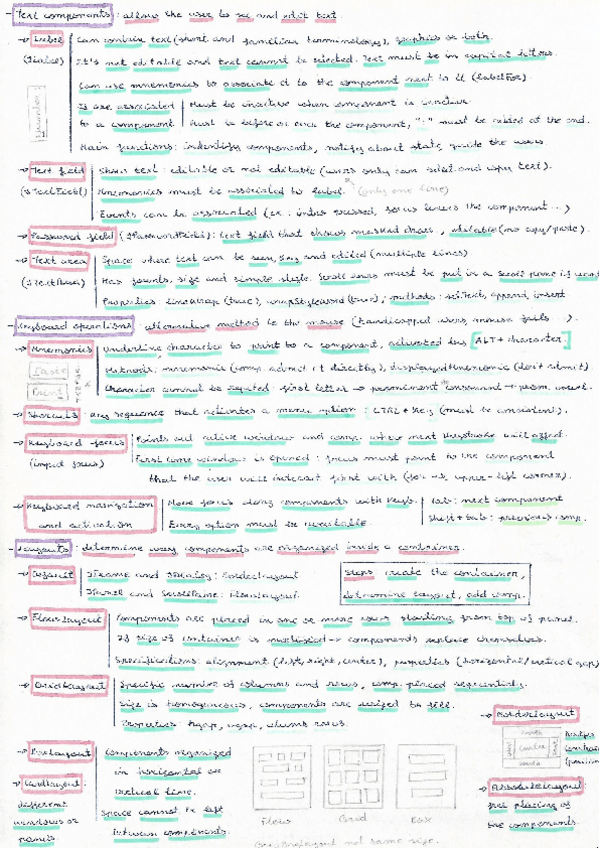 - Text components: allow the user to see and edit text.
→ Label (JLabel) Can contain text (short and familiar terminology), graphics or both.
It's not editable and text cannot be selected. Text must be in capital letters.
Can use mnemonics to associate it to the component next to it (labelFor).
If are associated to a component
Must be inactive when component is inactive.
Must be before or over the component, ":" must be added at the end.
Main functions: indentify components, notify about state, guide the users.
→ Text field (JTextField) Shows text: editable or not editable (users only can select and copy text).
Mnemonics must be associated to label. (only one line)
Events can be associated (ex: intro pressed, focus leaves the component...)
→ Password field (JPasswordField): text field that shows masked chars, editable (no copy/paste).
→ Text area (JTextArea) Space where text can be seen, and edited (multiple lines)
Has founts, size and simple style. Scroll bars must be put in a scroll pane if
Properties: lineWrap (true), wrapStyleWord (true); methods: setText, append, insert
- Keyboard operations: alternative method to the mouse (handicapped users, mouse fails...).
→ Mnemonics Underline character to point to a component, activated by [ALT + character.]
Methods: mnemonic (comp. admit it directly), displayedMnemonic (don't admit).
Character cannot be repeated: first letter → prominent consonant → prom. vowel.
→ Shortcuts: key sequence that activates a menu option: CTRL + Key (must be consistent).
→ Keyboard focus (input focus) Points out active window and comp. where next keystroke will affect.
First time window is opened: focus must point to the component
that the user will interact first with (for us, upper-left corner).
→ Keyboard navigation and activation Move focus along components with keys.
Every option must be
Tab: next component
Shift + tab: previous comp.
- Layouts: determine way components are organized inside a container.
→ Default JFrame and JDialog: BorderLayout
JPanel and : FlowLayout
Steps: create the container,
determine layout, add comp.
→ FlowLayout Components are placed in one or more rows starting from top of panel.
If size of container is modified → components replace themselves.
Specifications: alignment (left, right, center), properties (horizontal/vertical gap)
→ GridLayout Specific number of columns and rows, comp. placed sequentially.
Size is homogeneous, components are resized to fill.
Properties: hgap, vgap, columns rows.
→ BoxLayout Components organized
in horizontal or
vertical line.
Space cannot be left
between components.
→ CardLayout:
different
windows or
panels
Flow Grid Box
GridBagLayout not same size.
→ BorderLayout
north
west center east
south
→ AbsoluteLayout:
free placing of
the components.